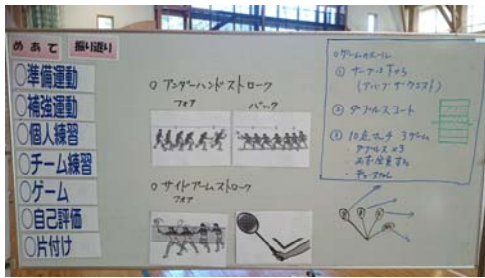 めあて
振り返り
○準備運動
○補強運動
○個人練習
○チーム練習
○ゲーム
○自己評価
○片付け
○アンダーハンドストローク
フォア
バック
○サイドアームストローク
フォア
○ゲームのルール
① サーブは下から
② ダブルスコート
③ 10点マッチ 3ゲーム
・ダブルス×3